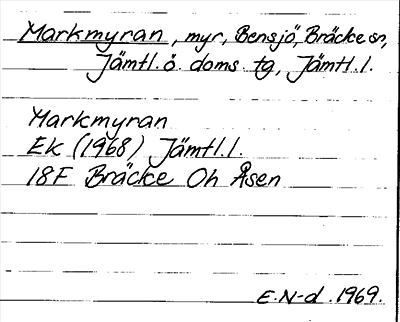 Markmyran, myr, Bensjö, Bräcke sn,
Jämtl. ö. doms. tg, Jämtl. l.
Markmyran
Ek (1968) Jämtl. l.
18F Bräcke Oh Åsen
E. N-d. 1969.